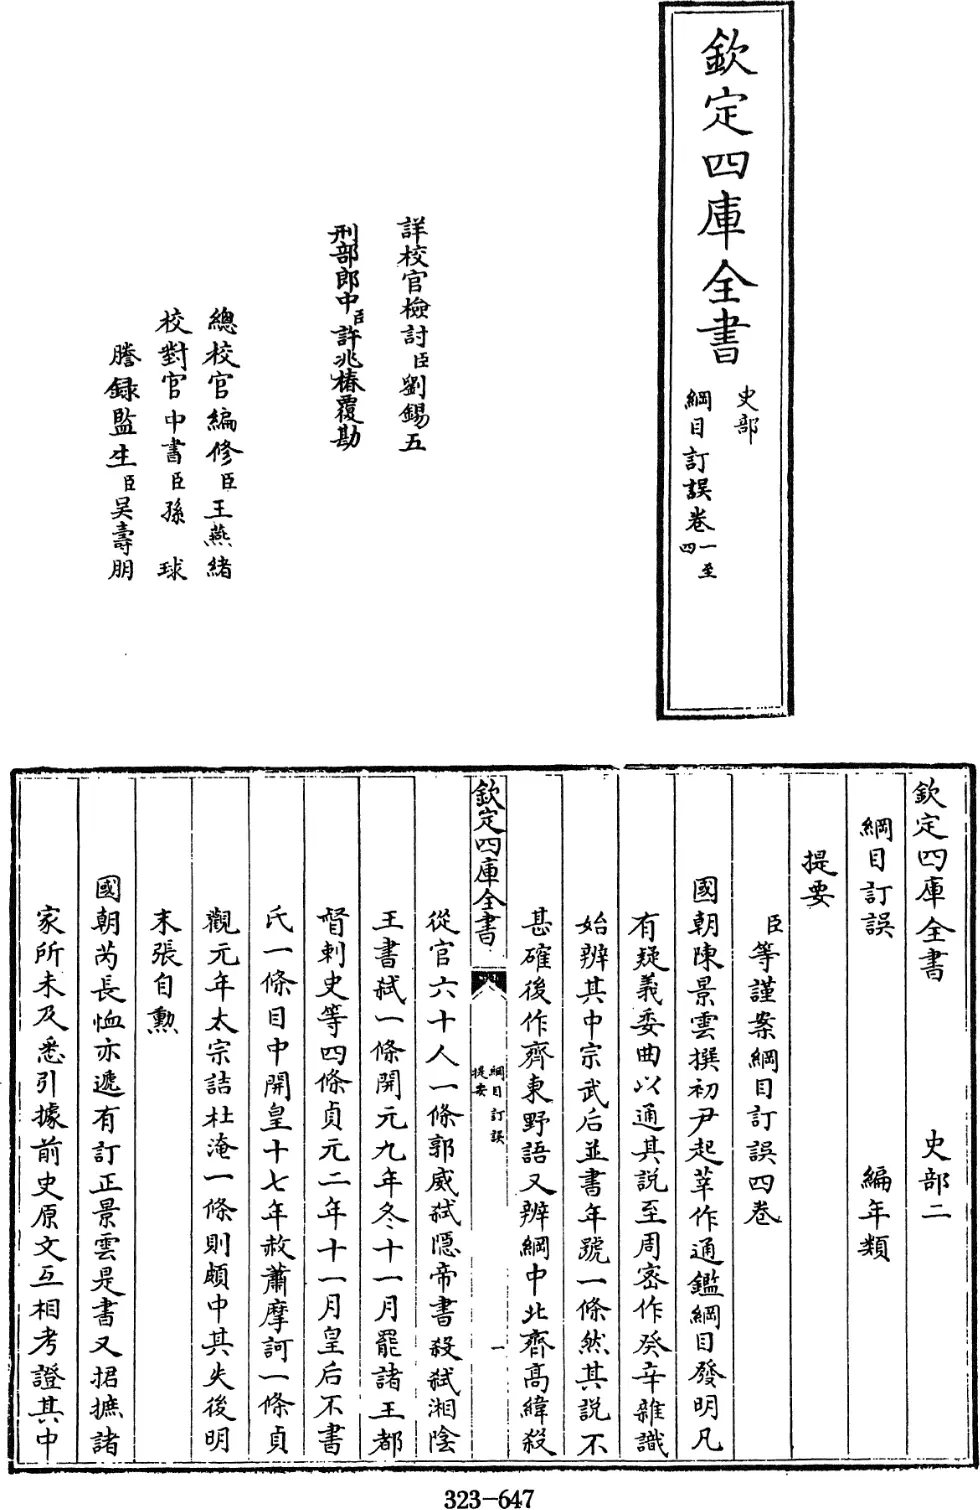 欽定四庫全書
史部
綱目訂誤卷一至四
詳校官檢討臣劉錫五
刑部郎中臣許兆椿覆勘
總校官編修臣王燕緒
校對官中書臣孫球
謄録監生臣吴壽朋
欽定四庫全書 史部二
綱目訂誤 編年類
提要
臣等謹案綱目訂誤四卷
國朝陳景雲撰初尹起莘作通鑑綱目發明凡
有疑義委曲以通其説至周密作癸辛雜識
始辨其中宗武后並書年號一條然其説不
甚確後作齊東野語又辨綱中北齊高緯殺
欽定四庫全書
綱目訂誤
提要
一
從官六十人一條郭威弑隱帝書殺弑湘陰
王書弑一條開元九年冬十一月罷諸王都
督刺史等四條貞元二年十一月皇后不書
氏一條目中開皇十七年赦蕭摩訶一條貞
觀元年太宗詰杜淹一條則頗中其失後明
末張自勲
國朝芮長恤亦遞有訂正景雲是書又捃摭諸
家所未及悉引據前史原文互相考證其中
323-647